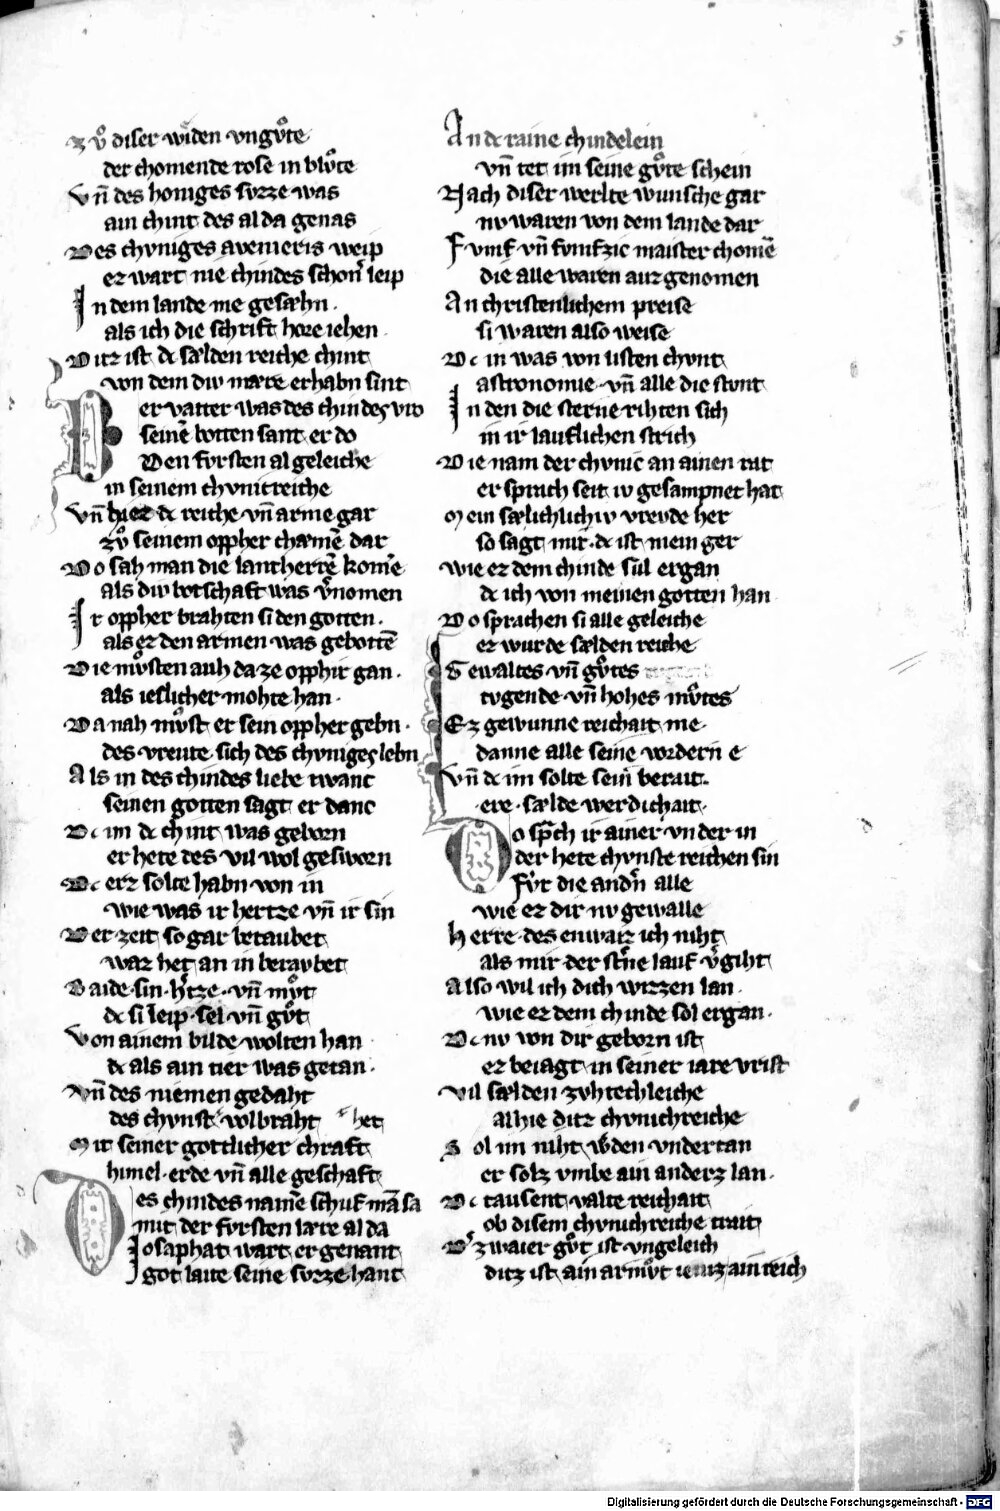 5
zvͦ diser wiͤden vngvͦte
der chomende rose in blvͦte
Vn̄ des honiges svzze was
ain chint des al da genas
Des chvniges avenieris weip
ez wart nie chindes schonˢ leip
In dem lande nie gesæhn.
als ich die schrift hore iehen.
Ditz ist dc sælden reiche chint
von dem div mære erhabn sint
Der vatter was des chindes vro
seinē botten sant er do
Den fvrsten al geleiche
in seinem chvnicreiche
Vn̄ hiez dc reiche vn̄ arme gar
zvͦ seinem oppher chæmē dar
Do sah man die lantherrē komē
als div botschaft was vˢnomen
Ir oppher brahten si den gotten.
als ez den armen was gebottē
Die mvͦsten auh da ze opphir gan.
als ieslicher mohte han.
Da nah mvͦst er sein oppher gebn.
des vreute sich des chvniges lebn
Als in des chindes liebe twanc
seinen gotten sagt er danc
Dc im dc chint was geborn
er hete des vil wol gesworn
Dc erz solte habn von in
wie was ir hertze vn̄ ir sin
Der zeit so gar betaubet
waz het an in beraubet
Baide sin hˢtze vn̄ mvͦt
dc si leip sel vn̄ gvͦt
Von ainem bilde wolten han
dc als ain tier was getan.
Vn̄ des niemen gedaht
des chvnst volbraht het
Mit seiner gottlicher chraft
himel erde vn̄ alle geschaft
Des chindes namē schuf mā sa
mit der fvrsten lære al da
Josaphat wart er genant
got laite seine svzze hant
An dc raine chindelein
vn̄ tet im seine gvͦte schein
Nach diser werlte wunsche gar
nv waren von dem lande dar
Fvmf vn̄ fvmfzic maister chomē
die alle waren auz genomen
An christenlichem preise
si waren also weise
Dc in was von listen chvnt
astronomie vn̄ alle die stvnt
In den die sterne rihten sich
in ir lauflichen strich
Die nam der chvnic an ainen rat
er sprach seit iv gesampnet hat
Mein sælichlichiv vrevde her
so sagt mir dc ist mein ger
wie ez dem chinde sul ergan
dc ich von meinen gotten han
Do sprachen si alle geleiche
er wurde sælden reiche
Gewaltes vn̄ gvͦtes
tvgende vn̄ hohes mvͦtes
Ez gewunne reichait nie
danne alle seine vordern e
Vn̄ dc im solte sein berait
ere sælde werdichait
Do sp̄ch ir ainer vnder in
der hete chvnste reichen sin
Fvr die andˢn alle
wie ez dir nv gewalle
Herre des enwaiz ich niht
als mir der stˢne lauf vˢgiht
Also wil ich dich wizzen lan.
wie ez dem chinde sol ergan.
Dc nv von dir geborn ist
ez beiagt in seiner iare vrist
Vil sælden zvhtechleiche
alhie ditz chvnichreiche
Sol im niht wˢden vndertan
er solz vmbe ain anderz lan.
Dc tausent valte reichait
ob disem chvnichreiche trait
Dˢ zwaier gvͦt ist vngeleich
ditz ist ain armvͦt ienz ain reich
Digitalisierung gefördert durch die Deutsche Forschungsgemeinschaft - DFG